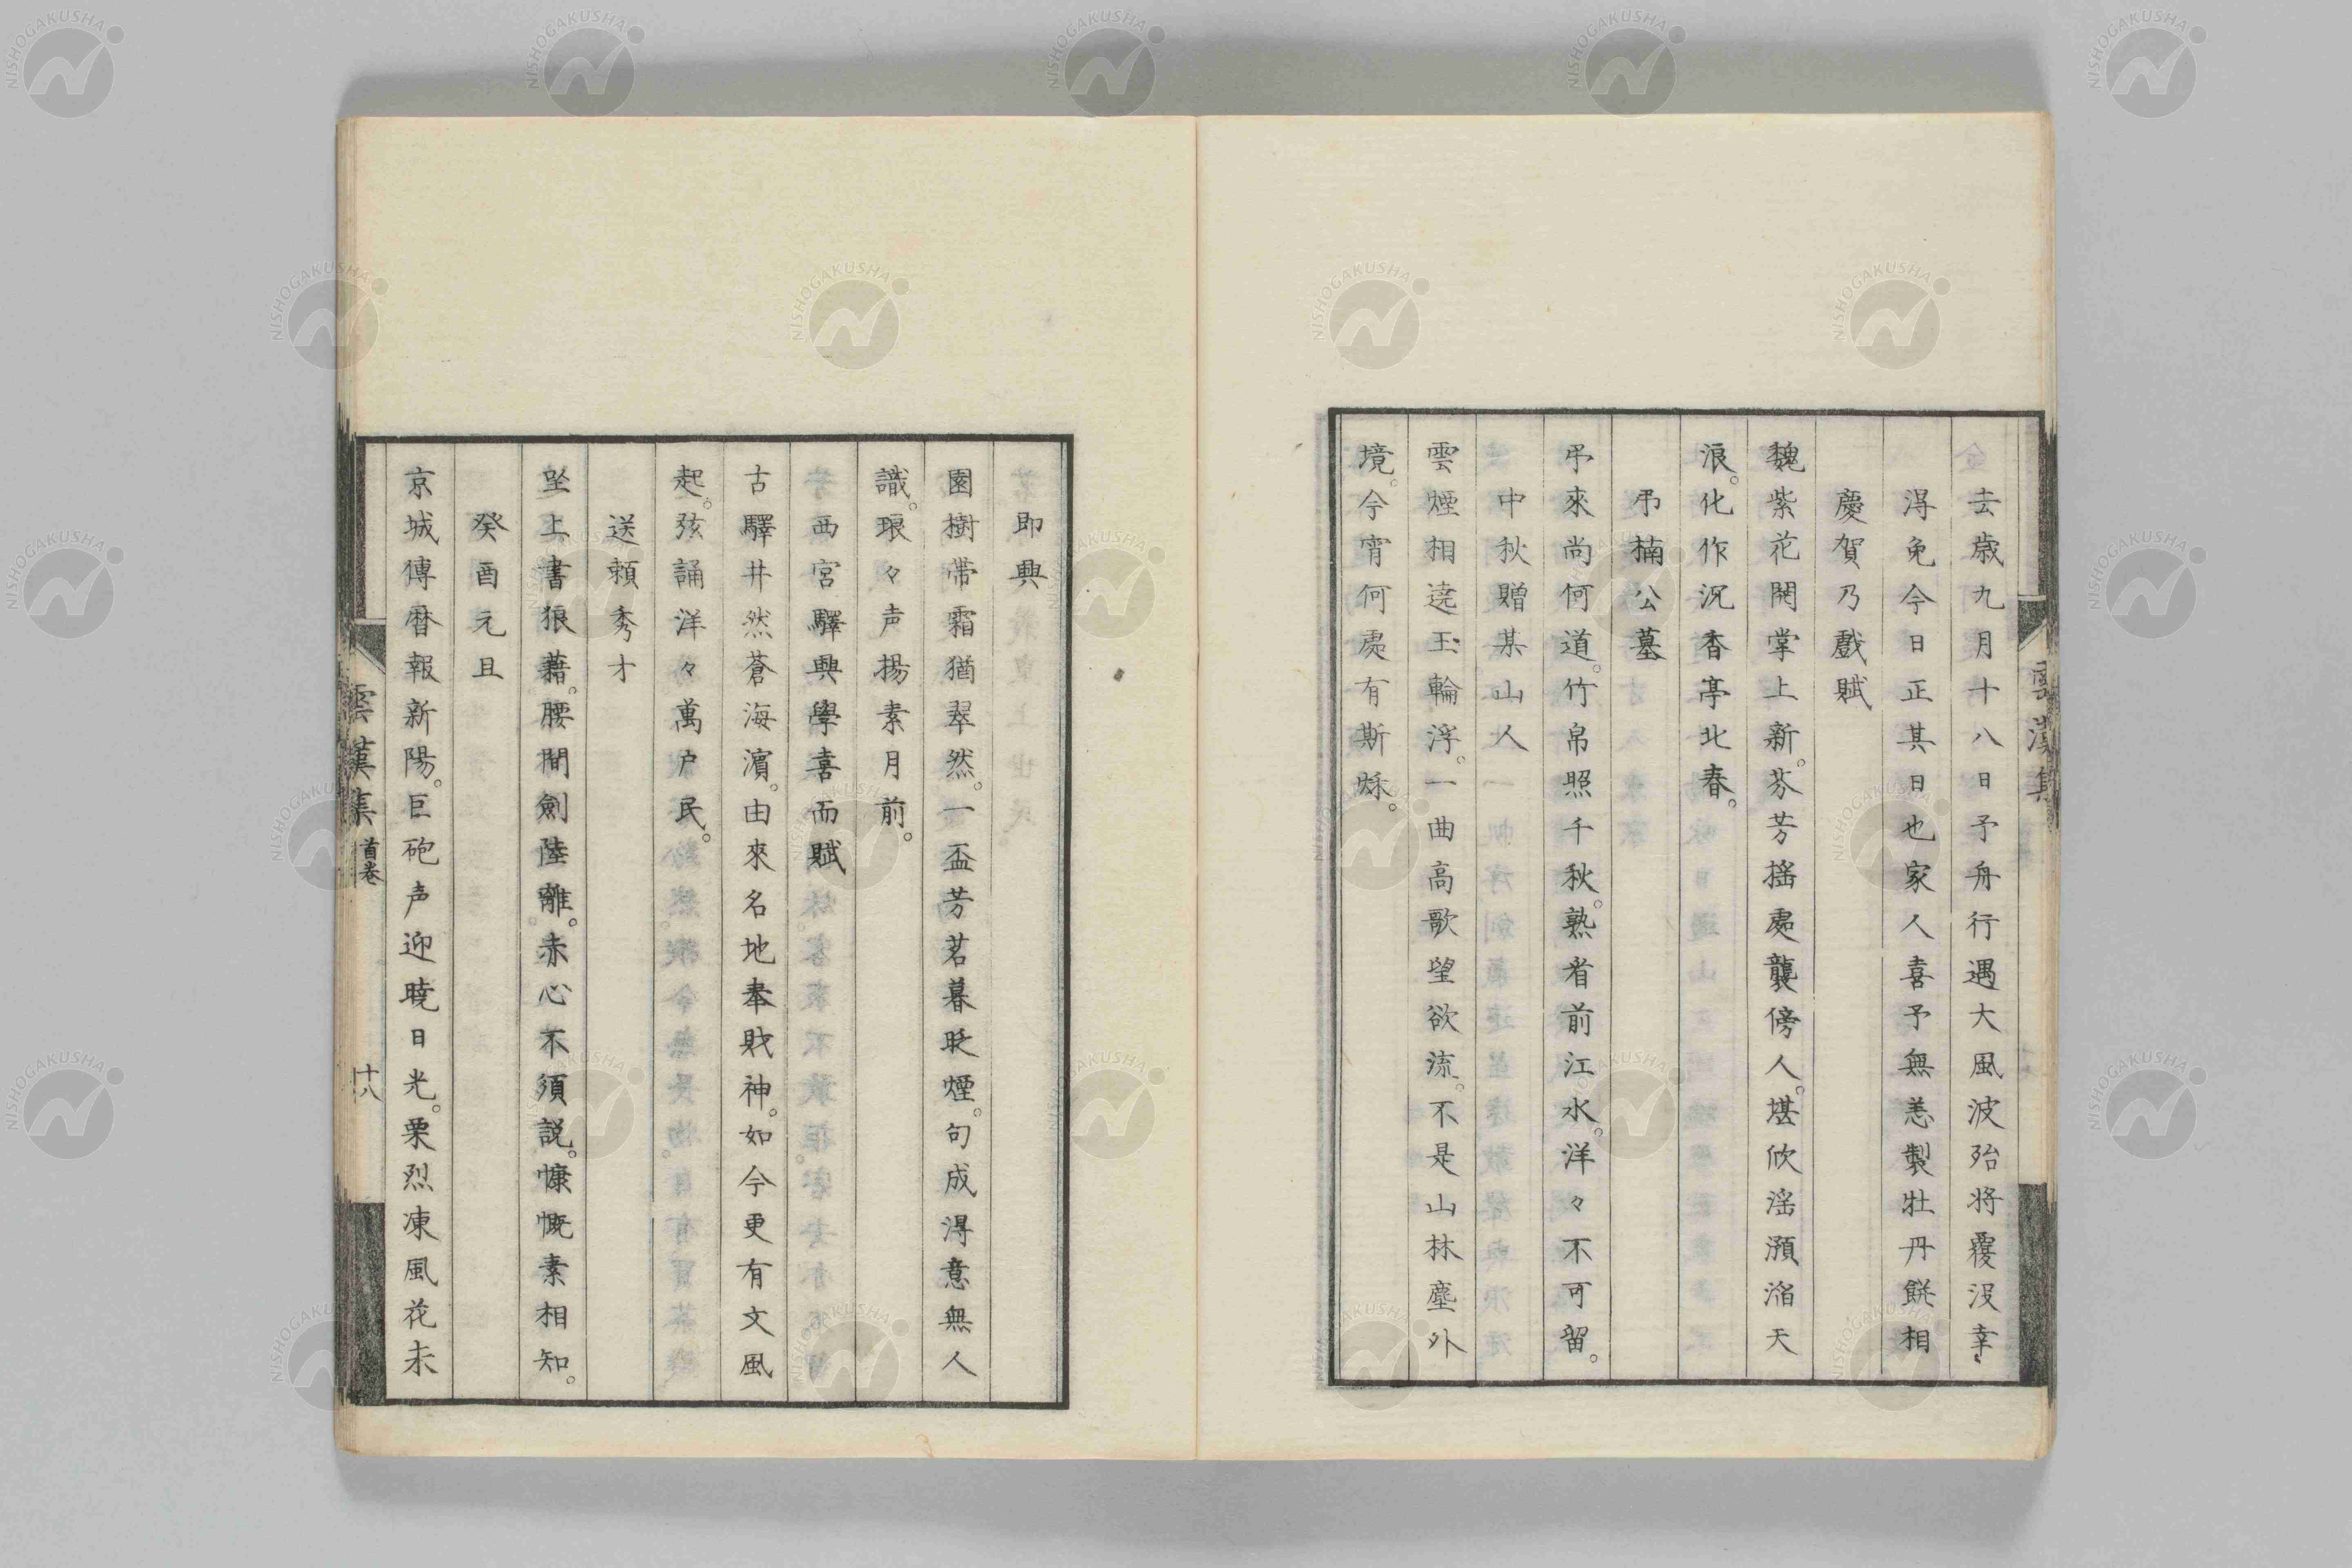 去歳九月十八日予舟行遇大風波殆将覆沒幸
得免今日正其日也家人喜予無恙製牡丹餅相
慶賀乃戲賦
魏紫花開掌上新。芬芳揺處襲傍人。堪欣淫澦滔天
浪。化作沉香亭北春。
弔楠公墓
弔來尚何道。竹帛照千秋。熟看前江水。洋々不可留。
中秋贈某山人
雲煙相遶玉輪浮。一曲高歌望欲流。不是山林塵外
境。今宵何處有斯秌。
雲漢集
即興
園樹帶霜猶翠然。一盃芳茗暮眩煙。句成得意無人
識。琅々声揚素月前。
西宮驛興學喜而賦
古驛井然蒼海濵。由來名地奉財神。如今更有文風
起。弦誦洋々萬户民。
送頼秀才
坐上書狼藉。腰間劍陸離。赤心不須説。慷慨素相知。
癸酉元旦
京城傳暦報新陽。巨砲声迎曉日光。栗烈凍風花未
雲漢集 首巻 十八
NISHOGAKUSHA